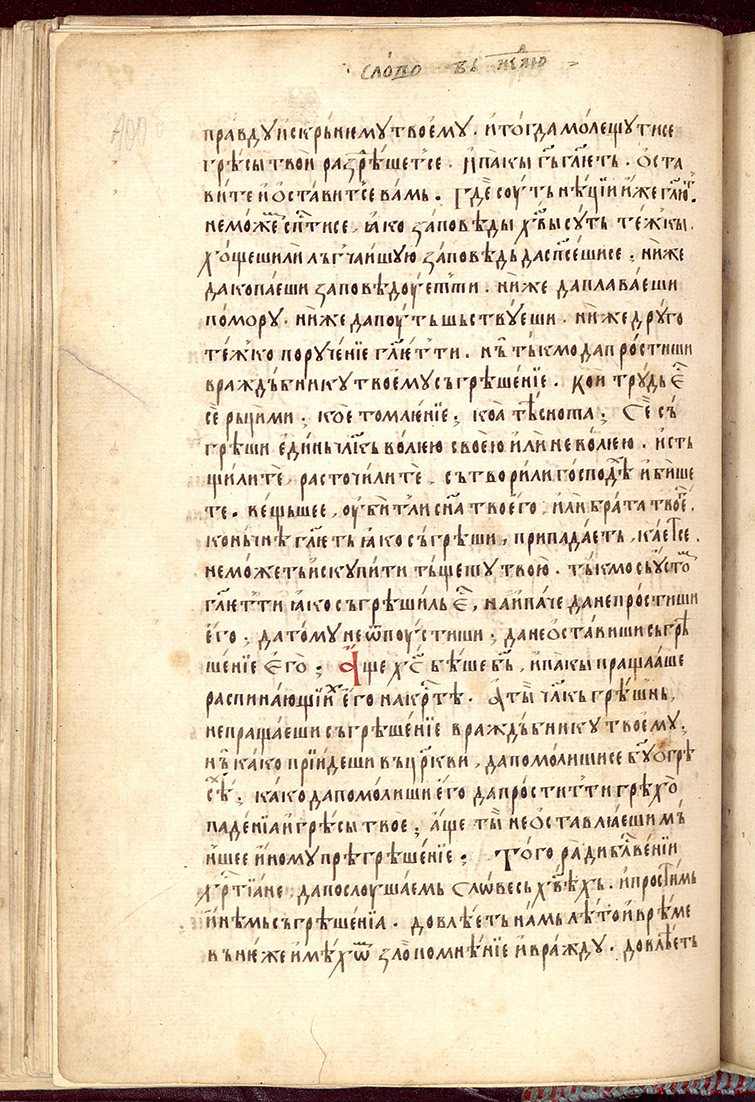 сло́во въ не́лю
пра́вду и҆ скрьнему твоемꙋ. и҆ тогда мо́лещꙋтисе
грѣ́сы твои раздрѣ́шетсе. и҆ па́кы гь҃ гл҃еть. ѻ҆ста
ви́те и҆ ѻ҆ста́витсе ва́мь. где соу́ть нѣ́цїи и҆́же гл҃ю́т.
не мо́жем сп҃тисе. ꙗ҆́ко заповѣды хв҃ы сꙋть те́жкы.
хо́щеши ли лъгча́ишꙋю за́повѣдь да сп҃се́шисе; ни́же
да копа́еши заповѣдоуетти. ни́же да пла́ваеши
по морꙋ. ни́же да поу́ть шьствꙋеши. ни́же дрꙋго
те́жко порꙋче́нїе гл҃ет ти. нъ̀ тъ́кмо да про́стиши
враждъ́бникꙋ твоемꙋ съгрѣше́нїе. ко́и трꙋдь е҆́с
се́ рьци ми; ко́е томле́нїе; каа тѣ́снота; Се́ съ
грѣ́ши е҆ди́нь чл҃кь волею своею и҆ли не волею. и҆сть
щили те̏, расточи́ли те̏, сътвори́ли господѣ и҆ би́ше
те. ве́щьшее, оу҆битли сн҃а твоего. и҆ли́ бра́та твоего.
коньчнѣ гл҃еть ꙗ҆ко съгрѣши, припада́еть, ка́етсе.
не мо́жеть и҆скꙋпи́ти тъще́тꙋ твою. тъкмо съ ꙋсты
гл҃етти ꙗ҆ко съгрѣши́ль е҆́с, наипа́че да не прости́ши
е҆го; да томꙋ не ѿпоу́стиши; да не ѻ҆ста́виши съгрѣ
ше́нїе е҆го; а҆́ще хс҃ бѣ́ше бь҃, и҆ па́кы праща́аше
распина́ющїих е҆го на кр҃тѣ. а҆ ты чл҃кь грѣ́шнь,
не праща́еши съгрѣше́нїе враждъ́бникꙋ твоемꙋ;
нъ̀ ка́ко прїи́деши въ црк҃ви, да помо́лишисе бг҃ꙋ о҆ грѣ
сѣ́х; ка́ко да помо́лиши е҆го да про́ститти грѣхо
паденїа и҆ грѣ́сы твое; а҆́ще ты не ѻ҆ставлꙗ́еши мъ
ньшее и҆номꙋ прѣгрѣше́нїе; Того ради бл҃гве́нїи
хр҃тїа́не, да послоу́шаемь сло́весь хв҃ѣхъ. и҆ простимь
и҆нѣмь съгрѣше́нїа. довлѣ́еть на́мь лѣ́то и҆ вре́ме
въ не́же и҆мѣхѡм злопомнѣ́нїе и҆ вра́ждꙋ. довлѣ́еть